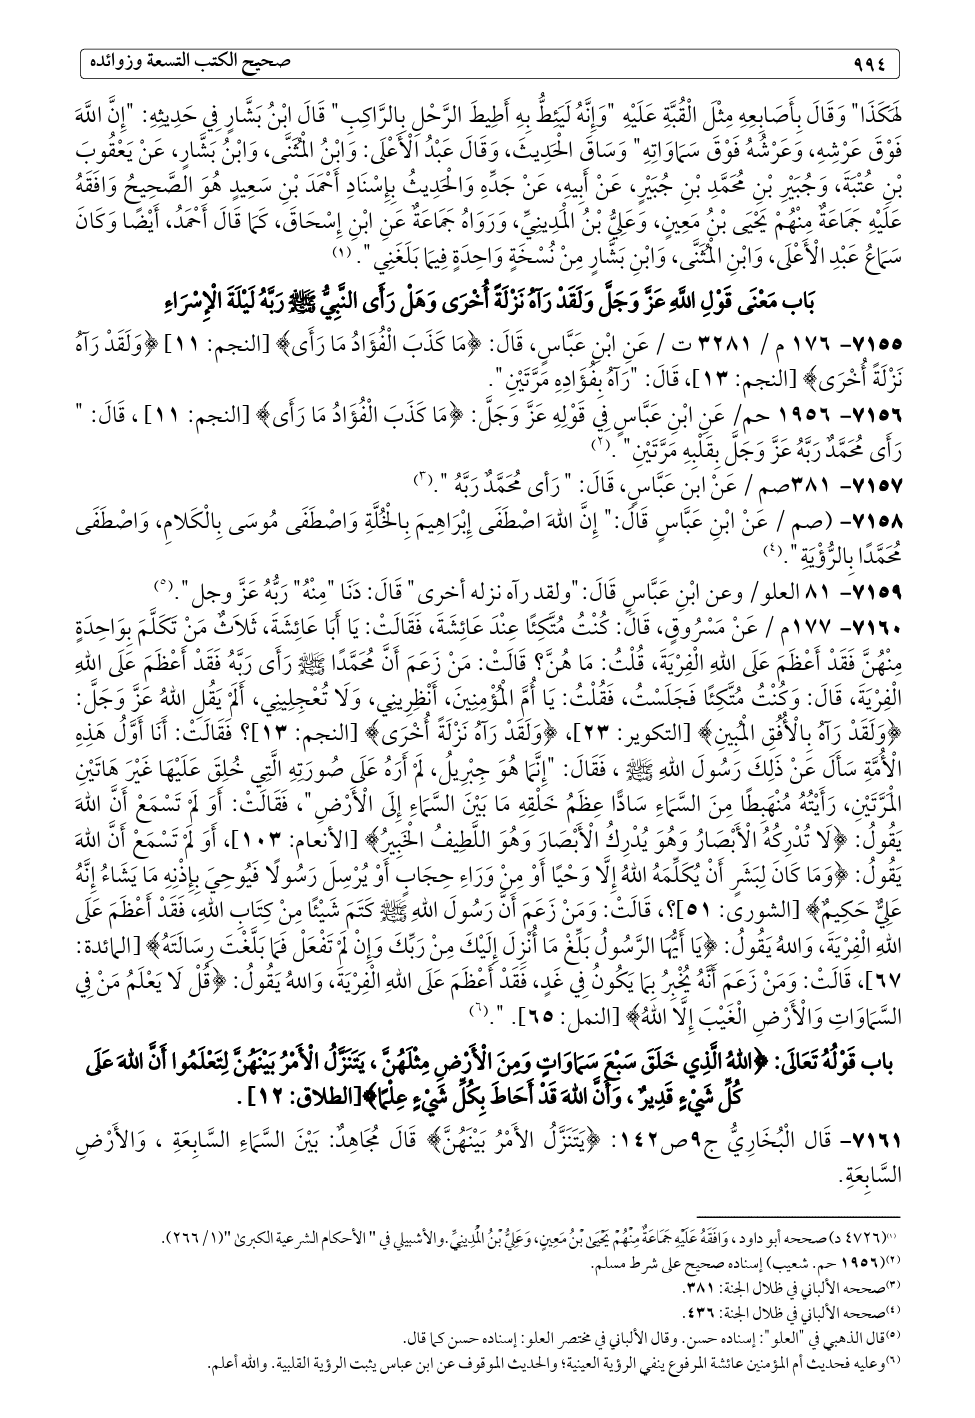 ٩٩٤ صحيح الكتب التسعة وزوائده
لَهَكَذَا" وَقَالَ بِأَصَابِعِهِ مِثْلَ الْقُبَّةِ عَلَيْهِ "وَإِنَّهُ لَيَئِطُّ بِهِ أَطِيطَ الرَّحْلِ بِالرَّاكِبِ" قَالَ ابْنُ بَشَّارٍ فِي حَدِيثِهِ: "إِنَّ اللَّهَ
فَوْقَ عَرْشِهِ، وَعَرْشُهُ فَوْقَ سَمَاوَاتِهِ" وَسَاقَ الْحَدِيثَ، وَقَالَ عَبْدُ الْأَعْلَى: وَابْنُ الْمُثَنَّى، وَابْنُ بَشَّارٍ، عَنْ يَعْقُوبَ
بْنِ عُتْبَةَ، وَجُبَيْرِ بْنِ مُحَمَّدِ بْنِ جُبَيْرٍ، عَنْ أَبِيهِ، عَنْ جَدِّهِ وَالْحَدِيثُ بِإِسْنَادِ أَحْمَدَ بْنِ سَعِيدٍ هُوَ الصَّحِيحُ وَافَقَهُ
عَلَيْهِ جَمَاعَةٌ مِنْهُمْ يَحْيَى بْنُ مَعِينٍ، وَعَلِيُّ بْنُ الْمَدِينِيِّ، وَرَوَاهُ جَمَاعَةٌ عَنِ ابْنِ إِسْحَاقَ، كَمَا قَالَ أَحْمَدُ، أَيْضًا وَكَانَ
سَمَاعُ عَبْدِ الْأَعْلَى، وَابْنِ الْمُثَنَّى، وَابْنِ بَشَّارٍ مِنْ نُسْخَةٍ وَاحِدَةٍ فِيمَا بَلَغَنِي". (١)
بَاب مَعْنَى قَوْلِ اللَّهِ عَزَّ وَجَلَّ وَلَقَدْ رَآهُ نَزْلَةً أُخْرَى وَهَلْ رَأَى النَّبِيُّ ﷺ رَبَّهُ لَيْلَةَ الْإِسْرَاءِ
٧١٥٥- ١٧٦ م / ٣٢٨١ ت / عَنِ ابْنِ عَبَّاسٍ، قَالَ: ﴿مَا كَذَبَ الْفُؤَادُ مَا رَأَى﴾ [النجم: ١١] ﴿وَلَقَدْ رَآهُ
نَزْلَةً أُخْرَى﴾ [النجم: ١٣]، قَالَ: "رَآهُ بِفُؤَادِهِ مَرَّتَيْنِ".
٧١٥٦- ١٩٥٦ حم/ عَنِ ابْنِ عَبَّاسٍ فِي قَوْلِهِ عَزَّ وَجَلَّ: ﴿مَا كَذَبَ الْفُؤَادُ مَا رَأَى﴾ [النجم: ١١] ، قَالَ: "
رَأَى مُحَمَّدٌ رَبَّهُ عَزَّ وَجَلَّ بِقَلْبِهِ مَرَّتَيْنِ" .(٢)
٧١٥٧- ٣٨١صم / عَنْ ابن عَبَّاسٍ، قَالَ: " رَأى مُحَمَّدٌ رَبَّهُ ".(٣)
٧١٥٨- (صم / عَنْ ابْنِ عَبَّاسٍ قَالَ:" إِنَّ اللهَ اصْطَفَى إِبْرَاهِيمَ بِالْخُلَّةِ وَاصْطَفَى مُوسَى بِالْكَلَامِ، وَاصْطَفَى
مُحَمَّدًا بِالرُّؤْيَةِ".(٤)
٧١٥٩- ٨١ العلو/ وعن ابْنِ عَبَّاسٍ قَالَ: "ولقد رآه نزله أخرى" قَالَ: دَنَا "مِنْهُ" رَبُّهُ عَزَّ وجل".(٥)
٧١٦٠- ١٧٧م / عَنْ مَسْرُوقٍ، قَالَ: كُنْتُ مُتَّكِئًا عِنْدَ عَائِشَةَ، فَقَالَتْ: يَا أَبَا عَائِشَةَ، ثَلَاثٌ مَنْ تَكَلَّمَ بِوَاحِدَةٍ
مِنْهُنَّ فَقَدْ أَعْظَمَ عَلَى اللهِ الْفِرْيَةَ، قُلْتُ: مَا هُنَّ؟ قَالَتْ: مَنْ زَعَمَ أَنَّ مُحَمَّدًا ﷺ رَأَى رَبَّهُ فَقَدْ أَعْظَمَ عَلَى اللهِ
الْفِرْيَةَ، قَالَ: وَكُنْتُ مُتَّكِئًا فَجَلَسْتُ، فَقُلْتُ: يَا أُمَّ الْمُؤْمِنِينَ، أَنْظِرِينِي، وَلَا تُعْجِلِينِي، أَلَمْ يَقُلِ اللهُ عَزَّ وَجَلَّ:
﴿وَلَقَدْ رَآهُ بِالْأُفُقِ الْمُبِينِ﴾ [التكوير: ٢٣]، ﴿وَلَقَدْ رَآهُ نَزْلَةً أُخْرَى﴾ [النجم: ١٣]؟ فَقَالَتْ: أَنَا أَوَّلُ هَذِهِ
الْأُمَّةِ سَأَلَ عَنْ ذَلِكَ رَسُولَ اللهِ ﷺ ، فَقَالَ: "إِنَّمَا هُوَ جِبْرِيلُ، لَمْ أَرَهُ عَلَى صُورَتِهِ الَّتِي خُلِقَ عَلَيْهَا غَيْرَ هَاتَيْنِ
الْمَرَّتَيْنِ، رَأَيْتُهُ مُنْهَبِطًا مِنَ السَّمَاءِ سَادًّا عِظَمُ خَلْقِهِ مَا بَيْنَ السَّمَاءِ إِلَى الْأَرْضِ"، فَقَالَتْ: أَوَ لَمْ تَسْمَعْ أَنَّ اللهَ
يَقُولُ: ﴿لَا تُدْرِكُهُ الْأَبْصَارُ وَهُوَ يُدْرِكُ الْأَبْصَارَ وَهُوَ اللَّطِيفُ الْخَبِيرُ﴾ [الأنعام: ١٠٣]، أَوَ لَمْ تَسْمَعْ أَنَّ اللهَ
يَقُولُ: ﴿وَمَا كَانَ لِبَشَرٍ أَنْ يُكَلِّمَهُ اللهُ إِلَّا وَحْيًا أَوْ مِنْ وَرَاءِ حِجَابٍ أَوْ يُرْسِلَ رَسُولًا فَيُوحِيَ بِإِذْنِهِ مَا يَشَاءُ إِنَّهُ
عَلِيٌّ حَكِيمٌ﴾ [الشورى: ٥١]؟، قَالَتْ: وَمَنْ زَعَمَ أَنَّ رَسُولَ اللهِ ﷺ كَتَمَ شَيْئًا مِنْ كِتَابِ اللهِ، فَقَدْ أَعْظَمَ عَلَى
اللهِ الْفِرْيَةَ، وَاللهُ يَقُولُ: ﴿يَا أَيُّهَا الرَّسُولُ بَلِّغْ مَا أُنْزِلَ إِلَيْكَ مِنْ رَبِّكَ وَإِنْ لَمْ تَفْعَلْ فَمَا بَلَّغْتَ رِسَالَتَهُ﴾ [المائدة:
٦٧]، قَالَتْ: وَمَنْ زَعَمَ أَنَّهُ يُخْبِرُ بِمَا يَكُونُ فِي غَدٍ، فَقَدْ أَعْظَمَ عَلَى اللهِ الْفِرْيَةَ، وَاللهُ يَقُولُ: ﴿قُلْ لَا يَعْلَمُ مَنْ فِي
السَّمَاوَاتِ وَالْأَرْضِ الْغَيْبَ إِلَّا اللهُ﴾ [النمل: ٦٥]. ".(٦)
باب قَوْلُهُ تَعَالَى: ﴿اللهُ الَّذِي خَلَقَ سَبْعَ سَمَاوَاتٍ وَمِنَ الْأَرْضِ مِثْلَهُنَّ ، يَتَنَزَّلُ الْأَمْرُ بَيْنَهُنَّ لِتَعْلَمُوا أَنَّ اللهَ عَلَى
كُلِّ شَيْءٍ قَدِيرٌ ، وَأَنَّ اللهَ قَدْ أَحَاطَ بِكُلِّ شَيْءٍ عِلْمًا﴾[الطلاق: ١٢] .
٧١٦١- قَال الْبُخَارِيُّ ج٩ص١٤٢: ﴿يَتَنَزَّلُ الأَمْرُ بَيْنَهُنَّ﴾ قَالَ مُجَاهِدٌ: بَيْنَ السَّمَاءِ السَّابِعَةِ ، وَالأَرْضِ
السَّابِعَةِ.
(١)(٤٧٢٦ د) صححه أبو داود ، وَافَقَهُ عَلَيْهِ جَمَاعَةٌ مِنْهُمْ يَحْيَىٰ بْنُ مَعِينٍ، وَعَلِيُّ بْنُ الْمَدِينِيِّ.والأشبيلي في " الأحكام الشرعية الكبرىٰ "(١/ ٢٦٦).
(٢)(١٩٥٦ حم. شعيب) إسناده صحيح على شرط مسلم.
(٣)صححه الألباني في ظلال الجنة: ٣٨١.
(٤)صححه الألباني في ظلال الجنة: ٤٣٦.
(٥)قال الذهبي في "العلو": إسناده حسن. وقال الألباني في مختصر العلو: إسناده حسن كما قال.
(٦)وعليه فحديث أم المؤمنين عائشة المرفوع ينفي الرؤية العينية؛ والحديث الموقوف عن ابن عباس يثبت الرؤية القلبية. والله أعلم.